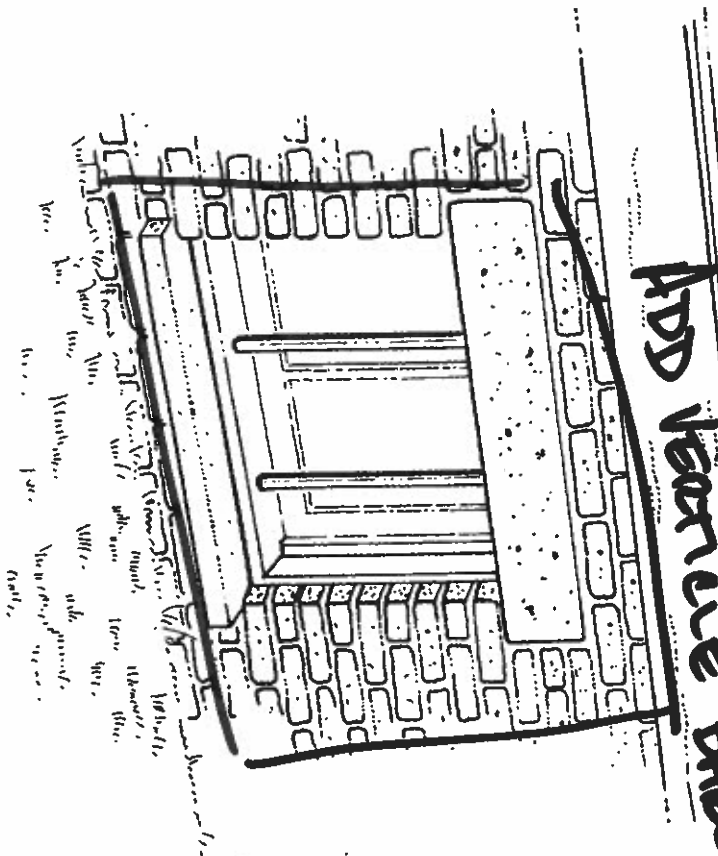 ADD VERTICLE